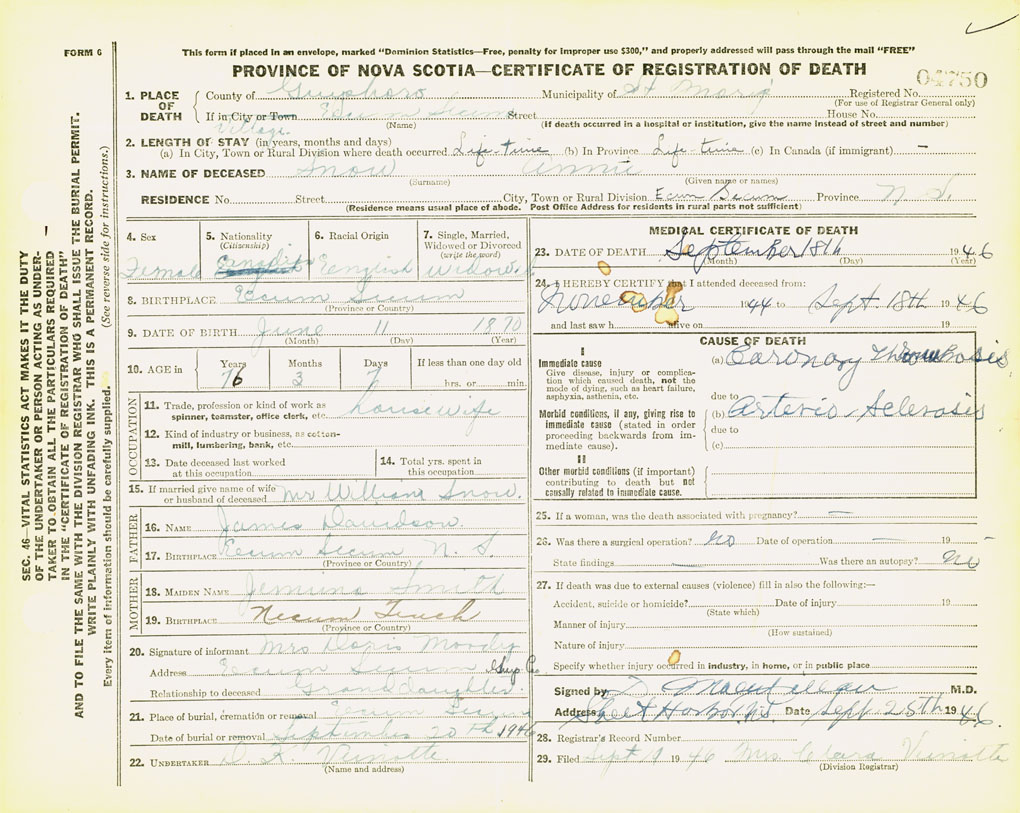 FORM 6
This form if placed in an envelope, marked "Dominion Statistics—Free, penalty for improper use $300," and properly addressed will pass through the mail "FREE"
PROVINCE OF NOVA SCOTIA—CERTIFICATE OF REGISTRATION OF DEATH
04750
SEC. 46—VITAL STATISTICS ACT MAKES IT THE DUTY
OF THE UNDERTAKER OR PERSON ACTING AS UNDER-
TAKER TO OBTAIN ALL THE PARTICULARS REQUIRED
IN THE "CERTIFICATE OF REGISTRATION OF DEATH"
AND TO FILE THE SAME WITH THE DIVISION REGISTRAR WHO SHALL ISSUE THE BURIAL PERMIT.
WRITE PLAINLY WITH UNFADING INK. THIS IS A PERMANENT RECORD.
Every item of information should be carefully supplied. (See reverse side for instructions.)
1. PLACE OF DEATH
County of Guysboro Municipality of St Mary's Registered No.
(For use of Registrar General only)
If in City or Town Ecum Secum Street House No.
Village (Name) (If death occurred in a hospital or institution, give the name instead of street and number)
2. LENGTH OF STAY (in years, months and days)
(a) In City, Town or Rural Division where death occurred Life-time (b) In Province Life-time (c) In Canada (if immigrant) —
3. NAME OF DECEASED Snow Annie
(Surname) (Given name or names)
RESIDENCE No. Street City, Town or Rural Division Ecum Secum Province N. S.
(Residence means usual place of abode. Post Office Address for residents in rural parts not sufficient)
4. Sex
Female
5. Nationality
(Citizenship)
6. Racial Origin
English
7. Single, Married,
Widowed or Divorced
(write the word)
Widowed
8. BIRTHPLACE Ecum Secum
(Province or Country)
9. DATE OF BIRTH June 11 1870
(Month) (Day) (Year)
10. AGE in Years Months Days If less than one day old
76 3 7 hrs. or min.
OCCUPATION
11. Trade, profession or kind of work as housewife
spinner, teamster, office clerk, etc.
12. Kind of industry or business, as cotton-
mill, lumbering, bank, etc.
13. Date deceased last worked
at this occupation
14. Total yrs. spent in
this occupation
15. If married give name of wife
or husband of deceased Mr William Snow.
FATHER
16. NAME James Davidson
17. BIRTHPLACE Ecum Secum N. S.
(Province or Country)
MOTHER
18. MAIDEN NAME Jemima Smith
19. BIRTHPLACE Necum Teuch
(Province or Country)
20. Signature of informant Mrs Doris Moody
Address Ecum Secum Guy Co
Relationship to deceased Granddaughter.
21. Place of burial, cremation or removal Ecum Secum
Date of burial or removal September 20th 1946
22. UNDERTAKER
(Name and address)
MEDICAL CERTIFICATE OF DEATH
23. DATE OF DEATH September 18th 1946
(Month) (Day) (Year)
24. I HEREBY CERTIFY that I attended deceased from:
November 1944 to Sept. 18th 1946
and last saw h alive on 19
CAUSE OF DEATH
I
Immediate cause
Give disease, injury or complica-
tion which caused death, not the
mode of dying, such as heart failure,
asphyxia, asthenia, etc.
(a) Coronary Thrombosis
due to
Morbid conditions, if any, giving rise to
immediate cause (stated in order
proceeding backwards from im-
mediate cause).
(b) Arterio-Sclerosis
due to
(c)
II
Other morbid conditions (if important)
contributing to death but not
causally related to immediate cause.
25. If a woman, was the death associated with pregnancy? —
26. Was there a surgical operation? no Date of operation — 19 —
State findings — Was there an autopsy? no
27. If death was due to external causes (violence) fill in also the following:—
Accident, suicide or homicide? Date of injury 19
(State which)
Manner of injury
(How sustained)
Nature of injury
Specify whether injury occurred in industry, in home, or in public place
Signed by M.D.
Address Sheet Harbor N.S. Date Sept 25th 1946.
28. Registrar's Record Number
29. Filed Sept 1946 Mrs Clara
(Division Registrar)